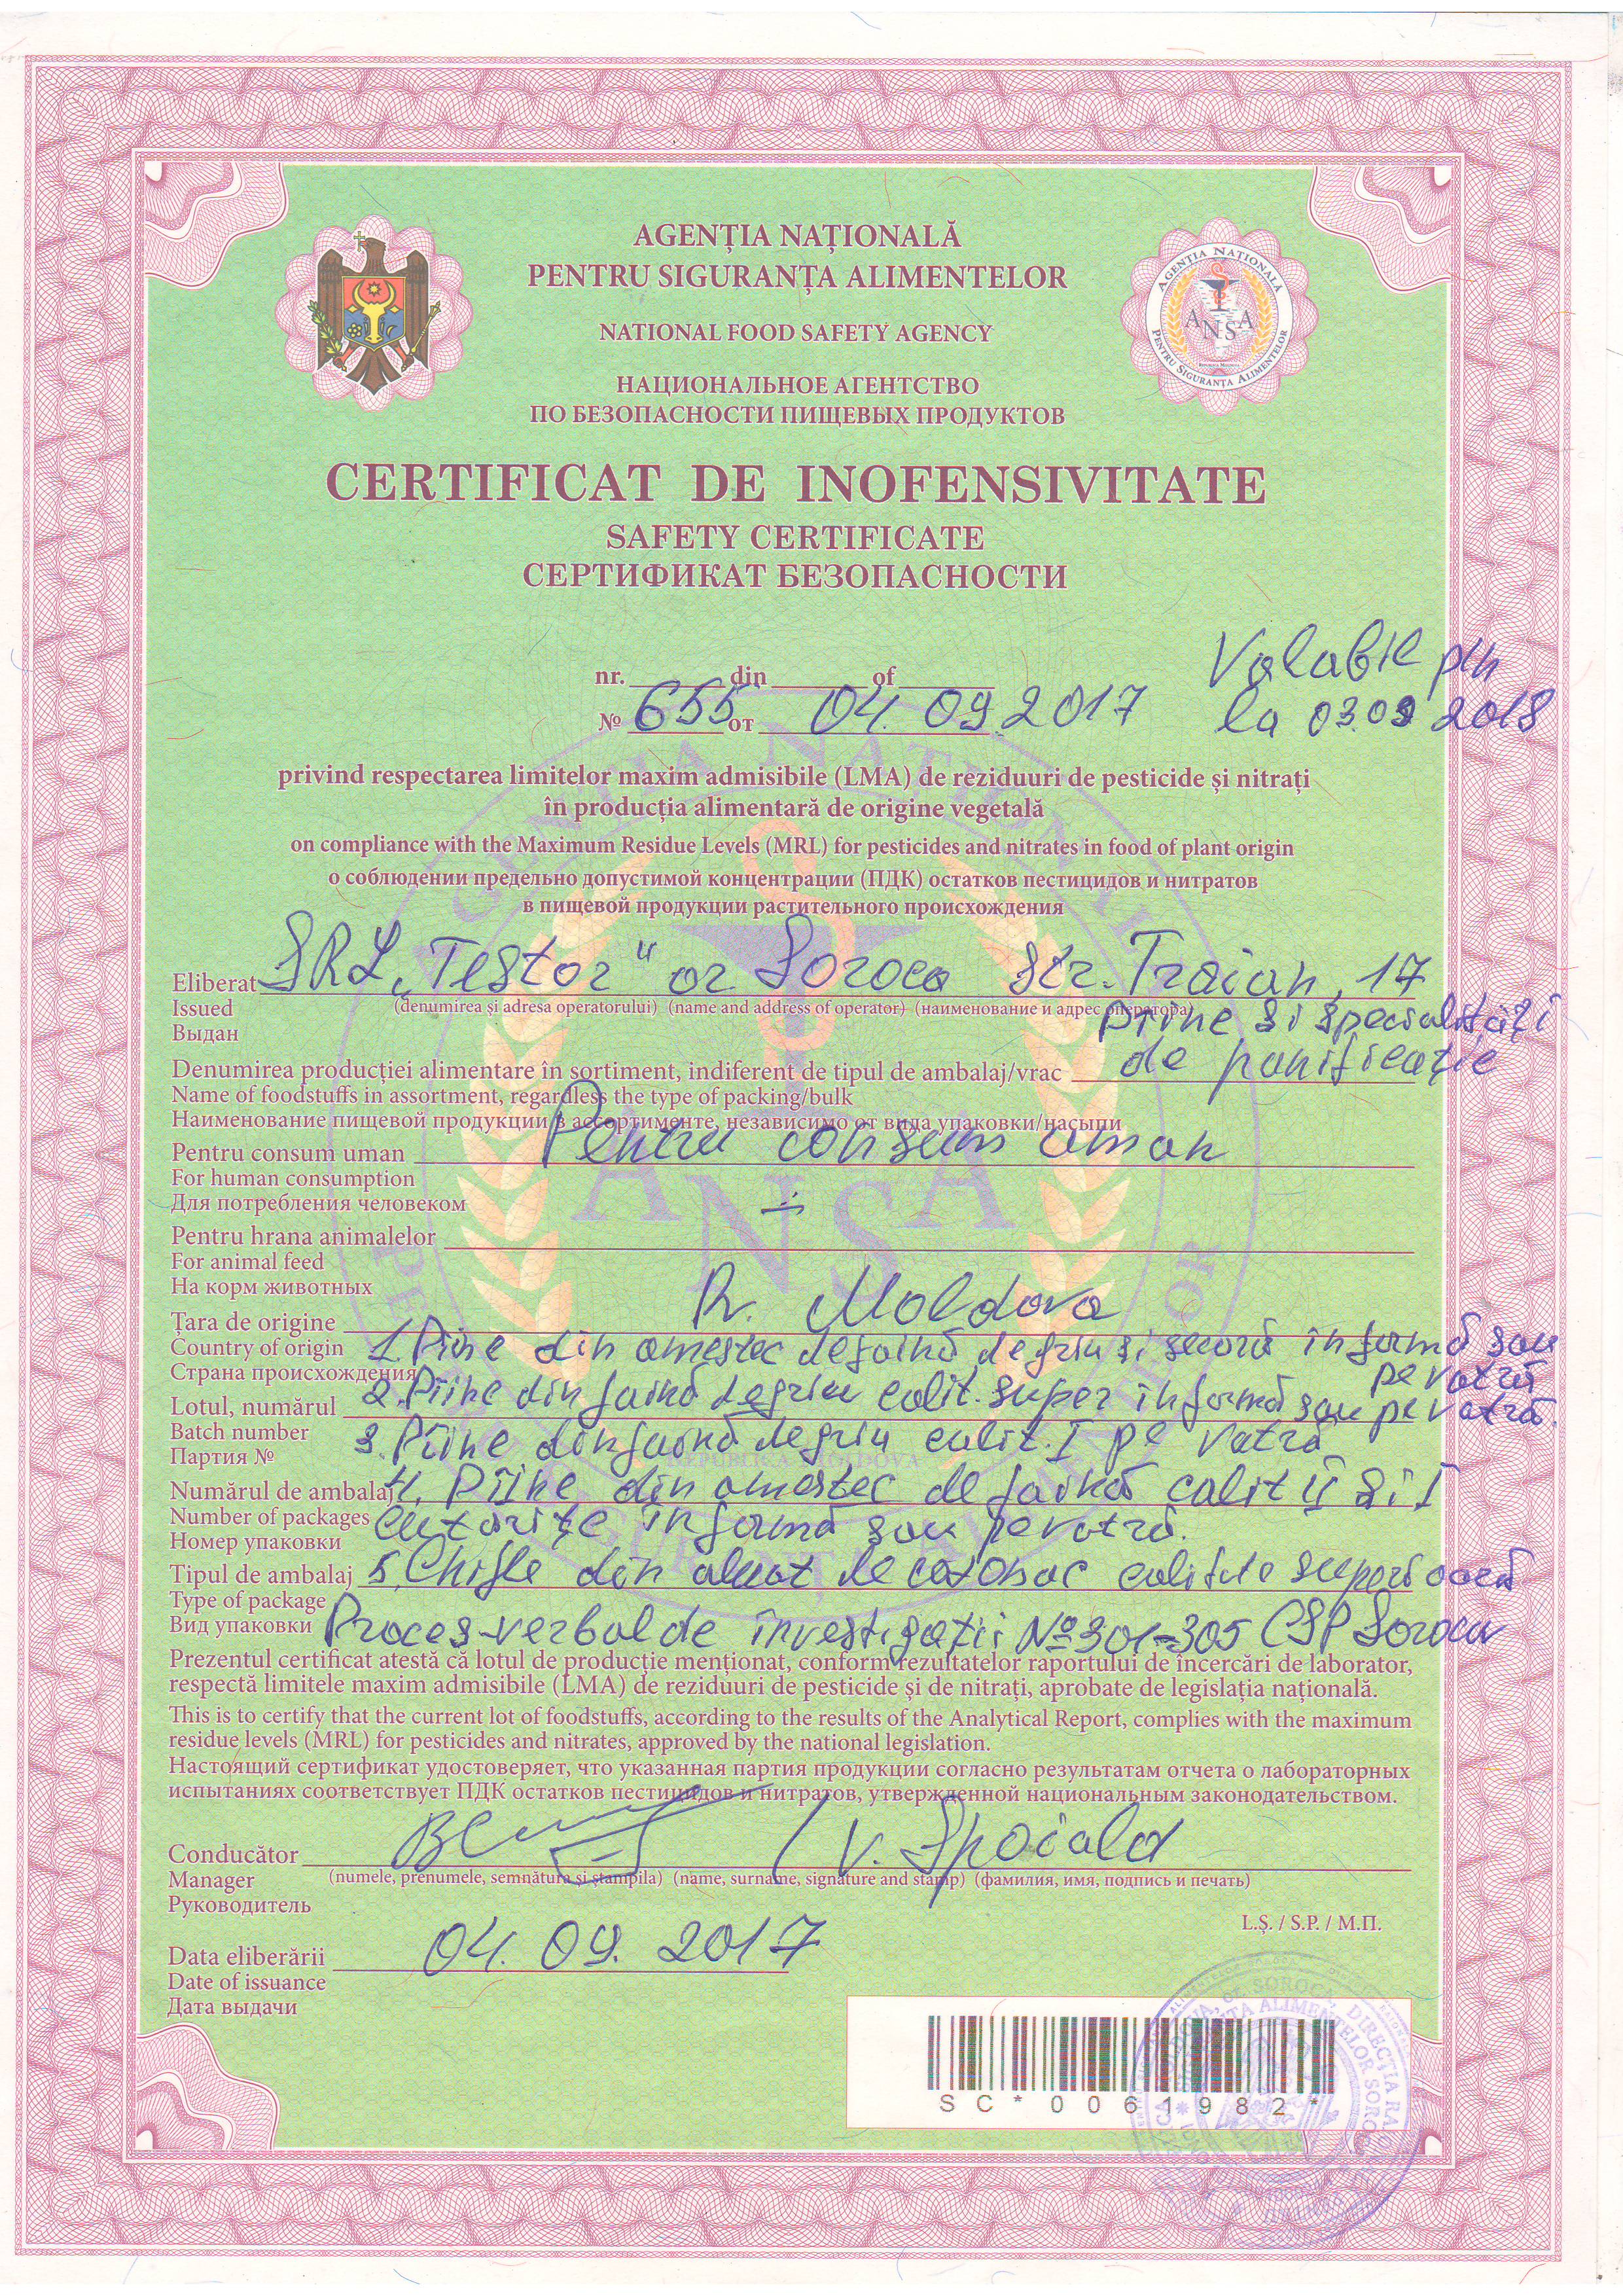 AGENȚIA NAȚIONALĂ
PENTRU SIGURANȚA ALIMENTELOR
NATIONAL FOOD SAFETY AGENCY
НАЦИОНАЛЬНОЕ АГЕНТСТВО
ПО БЕЗОПАСНОСТИ ПИЩЕВЫХ ПРОДУКТОВ
AGENȚIA NAȚIONALĂ
ANSA
PENTRU SIGURANȚA ALIMENTELOR
CERTIFICAT DE INOFENSIVITATE
SAFETY CERTIFICATE
СЕРТИФИКАТ БЕЗОПАСНОСТИ
Valabil pîn
la 03.09 2018
nr. din of
№ 655 от 04.09.2017
privind respectarea limitelor maxim admisibile (LMA) de reziduuri de pesticide și nitrați
în producția alimentară de origine vegetală
on compliance with the Maximum Residue Levels (MRL) for pesticides and nitrates in food of plant origin
о соблюдении предельно допустимой концентрации (ПДК) остатков пестицидов и нитратов
в пищевой продукции растительного происхождения
Eliberat SRL „Testor" or Soroca str. Traian, 17
Issued (denumirea și adresa operatorului) (name and address of operator) (наименование и адрес оператора)
Выдан
pîine și specialități
Denumirea producției alimentare în sortiment, indiferent de tipul de ambalaj/vrac de panificație
Name of foodstuffs in assortment, regardless the type of packing/bulk
Наименование пищевой продукции в ассортименте, независимо от вида упаковки/насыпи
Pentru consum uman Pentru consum uman
For human consumption
Для потребления человеком
Pentru hrana animalelor
For animal feed
На корм животных
Țara de origine R. Moldova
Country of origin 1. Pîine din amestec de faină de grîu și secară în formă sau
Страна происхождения pe vatră
Lotul, numărul 2. Pîine din faină de grîu calit. super în formă sau pe vatră.
Batch number 3. Pîine din faină de grîu calit. I pe vatră
Партия №
Numărul de ambalaj 4. Pîine din amestec de faină calit II și I
Number of packages în formă sau pe vatră.
Номер упаковки
Tipul de ambalaj 5. Chifle din aluat de calitate superioară
Type of package
Вид упаковки Proces-verbal de investigații № 301-305 CSP Soroca
Prezentul certificat atestă că lotul de producție menționat, conform rezultatelor raportului de încercări de laborator,
respectă limitele maxim admisibile (LMA) de reziduuri de pesticide și de nitrați, aprobate de legislația națională.
This is to certify that the current lot of foodstuffs, according to the results of the Analytical Report, complies with the maximum
residue levels (MRL) for pesticides and nitrates, approved by the national legislation.
Настоящий сертификат удостоверяет, что указанная партия продукции согласно результатам отчета о лабораторных
испытаниях соответствует ПДК остатков пестицидов и нитратов, утвержденной национальным законодательством.
Conducător V. Spoială
Manager (numele, prenumele, semnătura și ștampila) (name, surname, signature and stamp) (фамилия, имя, подпись и печать)
Руководитель
L.Ș. / S.P. / М.П.
Data eliberării 04.09.2017
Date of issuance
Дата выдачи
SC*0061982*